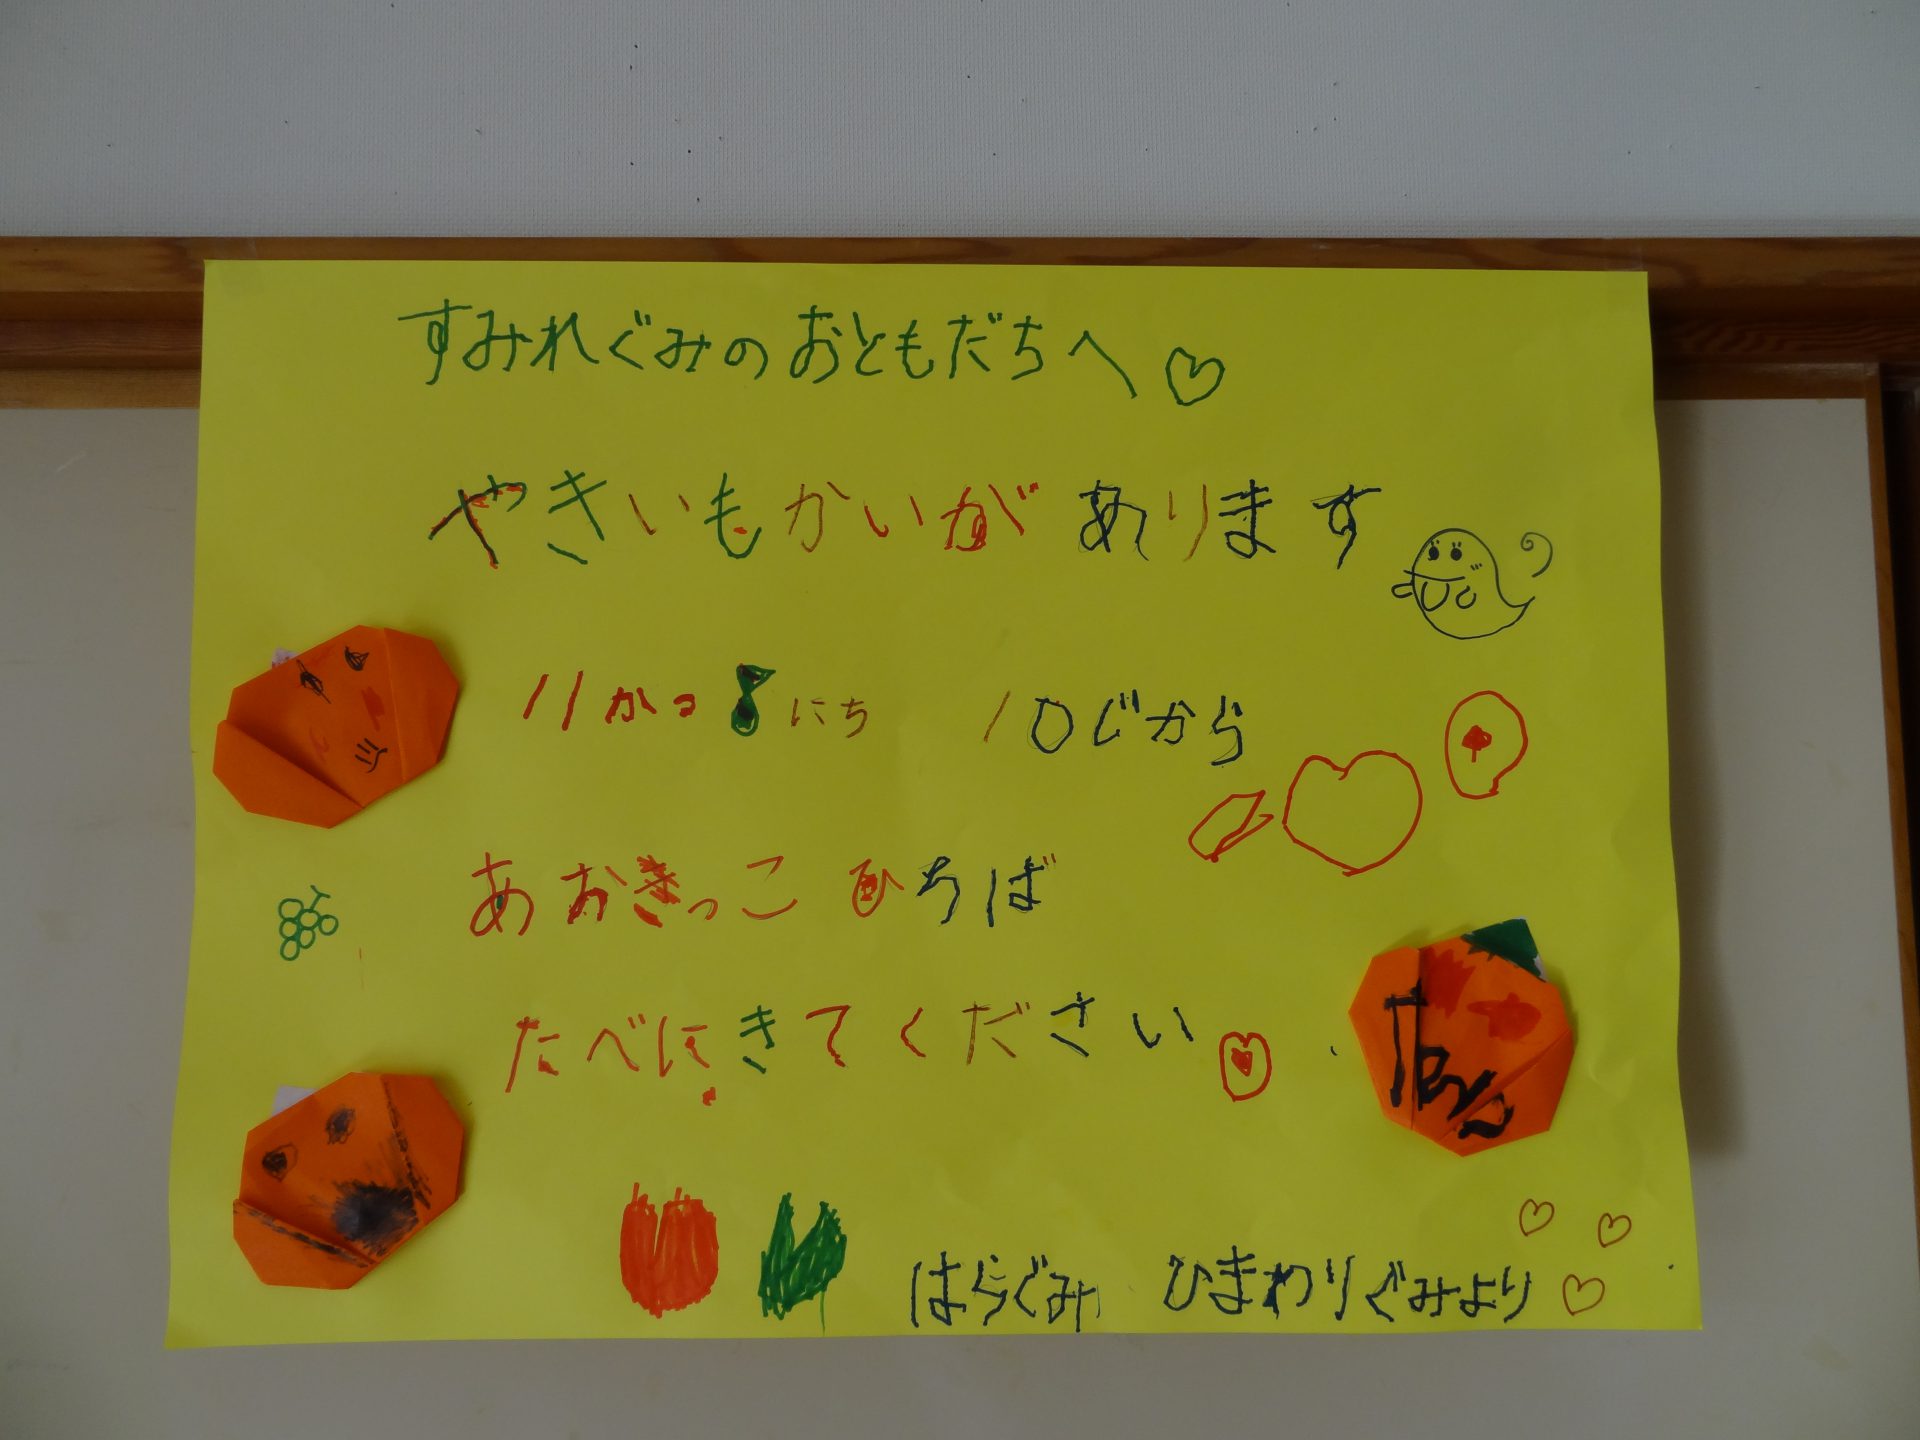 すみれぐみのおともだちへ♡
やきいもかいがあります
11がつ8にち 10じから
あおきっこ ひろば
たべにきてください
ばらぐみ ひまわりぐみより